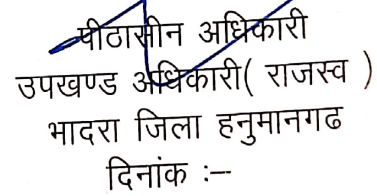 पीठासीन अधिकारी
उपखण्ड अधिकारी( राजस्व )
भादरा जिला हनुमानगढ
दिनांक :--